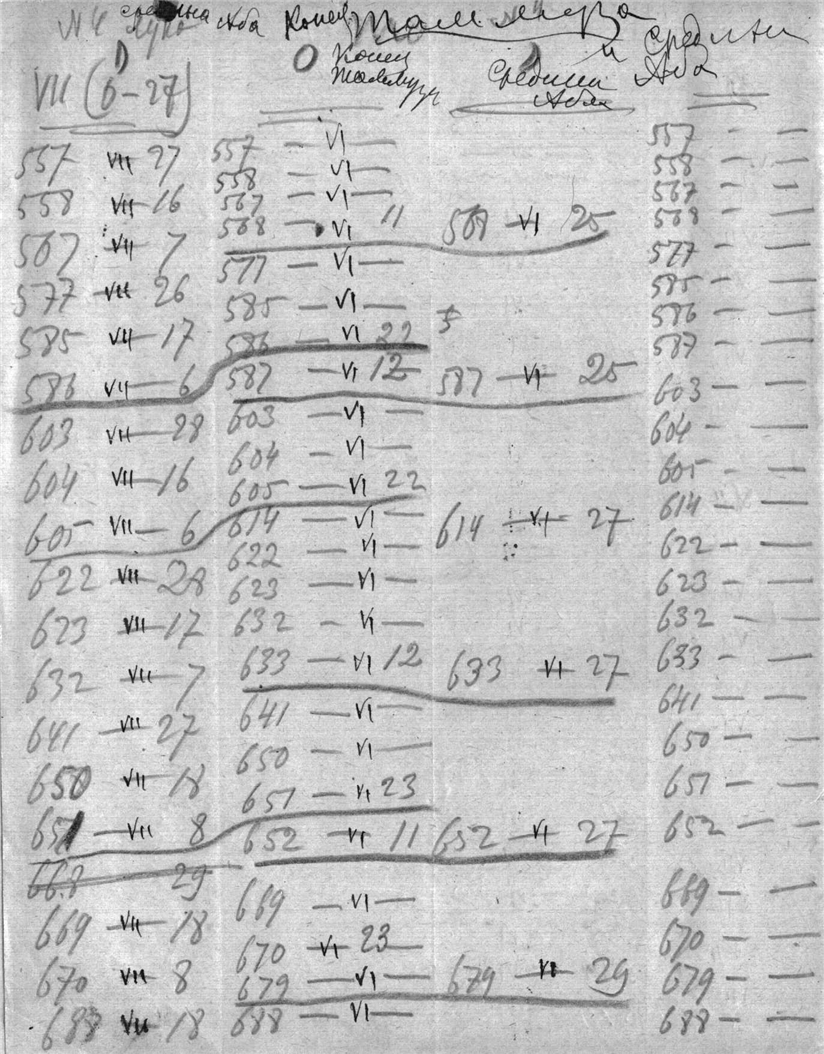 N 4 средина Аба Конец Таммуза и Средины
Конец Таммуза Средины Аба Аба
VII (6-27)
557 VII 27 557 — VI — 557 — —
558 VII 16 558 — VI — 558 — —
567 VII 7 567 — VI — 567 — —
577 VII 26 568 VI 11 568 VI 25 568 — —
585 VII 17 577 — VI — 577 — —
586 VII 6 585 — VI — 585 — —
603 VII 28 586 VI 22 586 — —
604 VII 16 587 — VI 12 587 — VI 25 587 — —
605 VII 6 603 — VI — 603 — —
622 VII 28 604 — VI — 604 — —
623 VII 17 605 — VI 22 605 — —
632 VII 7 614 — VI — 614 VI 27 614 — —
641 VII 27 622 — VI — 622 — —
650 VII 18 623 — VI — 623 — —
651 — VII 8 632 — VI — 632 — —
668 29 633 — VI 12 633 VI 27 633 — —
669 VII 18 641 — VI — 641 — —
670 VII 8 650 — VI — 650 — —
688 VII 18 651 — VI 23 651 — —
652 — VI 11 652 — VI 27 652 — —
669 — VI — 669 — —
670 VI 23 670 — —
679 — VI — 679 — VI 29 679 — —
688 — VI — 688 — —